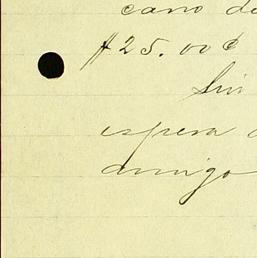 cano de
$25.00¢
Sin
espera
amigo